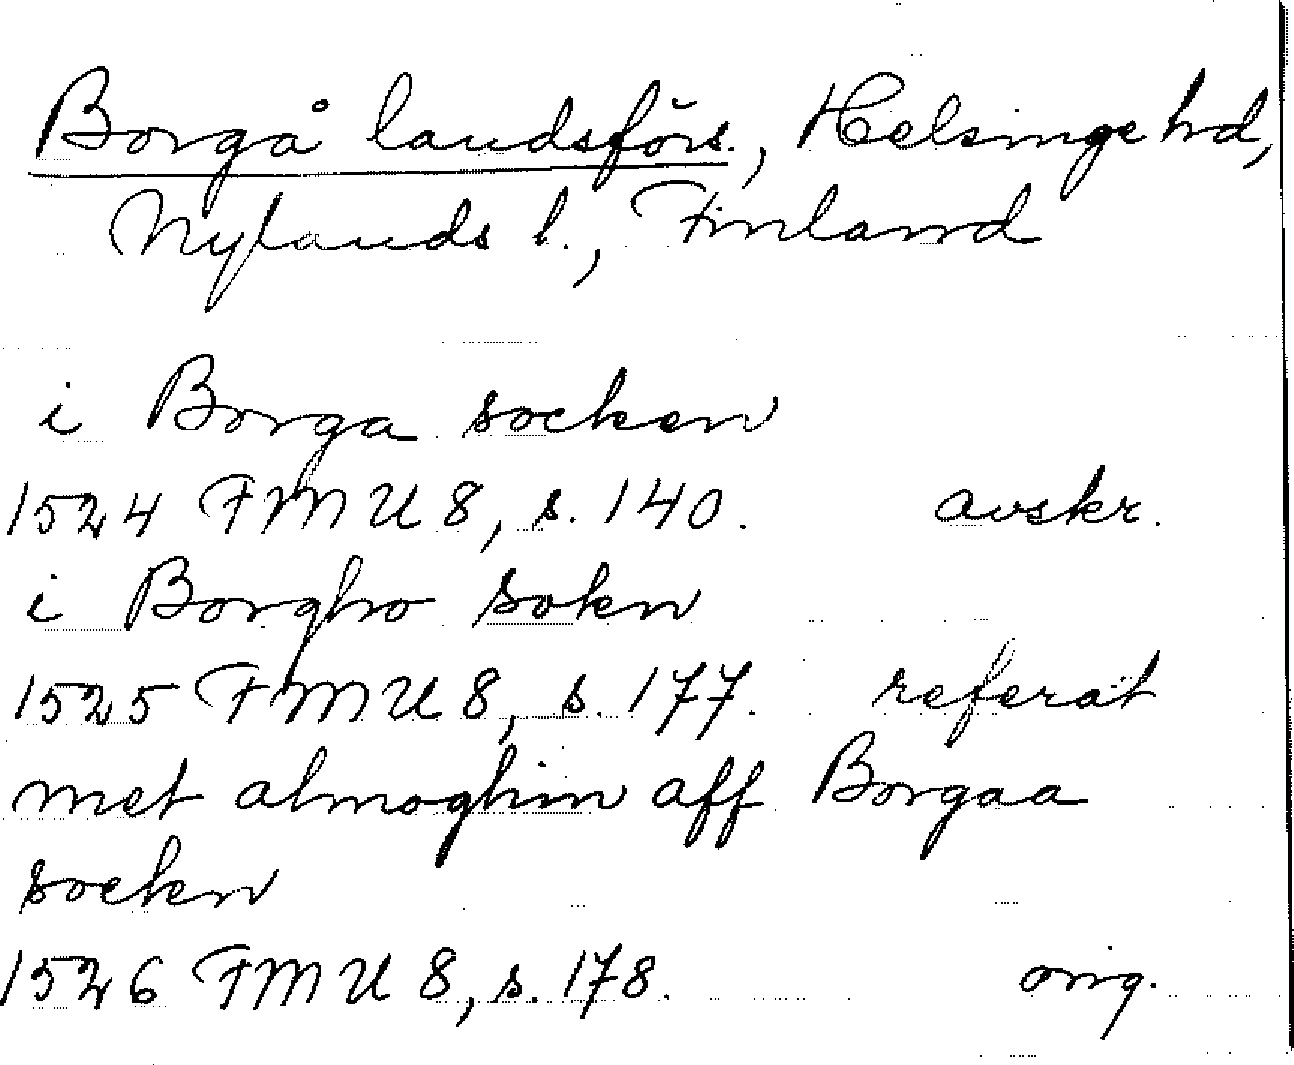 Borgå landsförs., Helsinge hd,
Nylands l., Finland
i Borga socken
1524 FMU 8, s. 140. avskr.
i Borgho Sokn
1525 FMU 8, s. 177. referat
met almoghin aff Borgaa
sockn
1526 FMU 8, s. 178. orig.